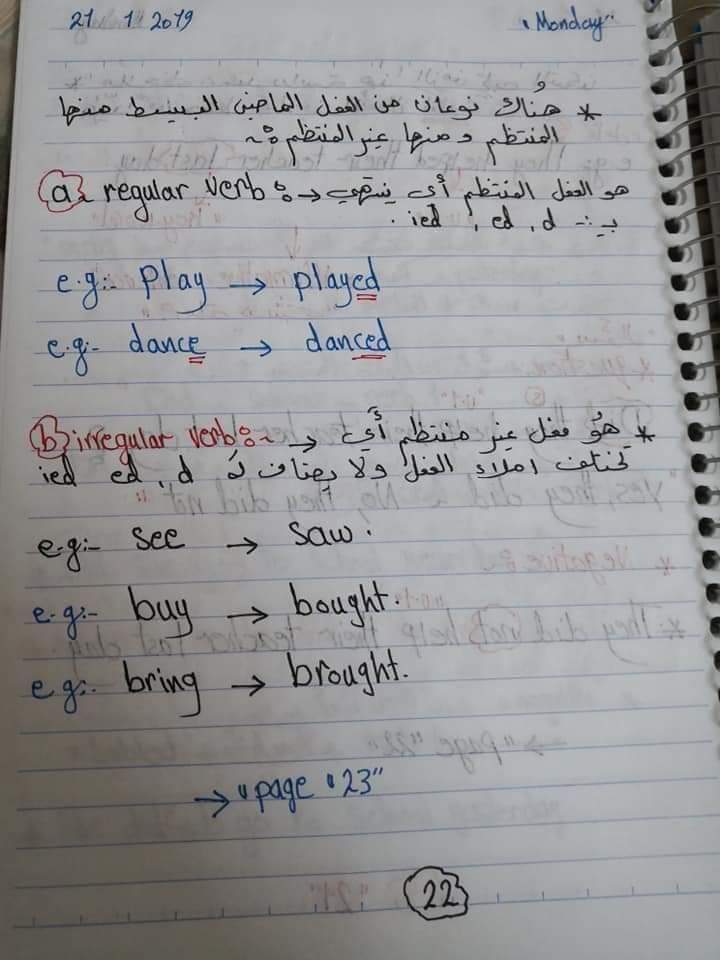 21 1 2019 "Monday"
* هُناك نوعان من الفعل الماضي البسيط منها
المنتظم ومنها غير المنتظم :~
a~ regular verb :~ → هو الفعل المنتظم أي ينتهي
بـ :- ied , ed , d .
e.g:- play → played
e.g:- dance → danced
b) irregular verb :~ → * هُو فعل غير منتظم أي
تختلف املاء الفعل ولا يضاف لهُ ied ed , d
e.g:- see → saw.
e.g:- buy → bought.
e.g:- bring → brought.
→ "page "23"
22